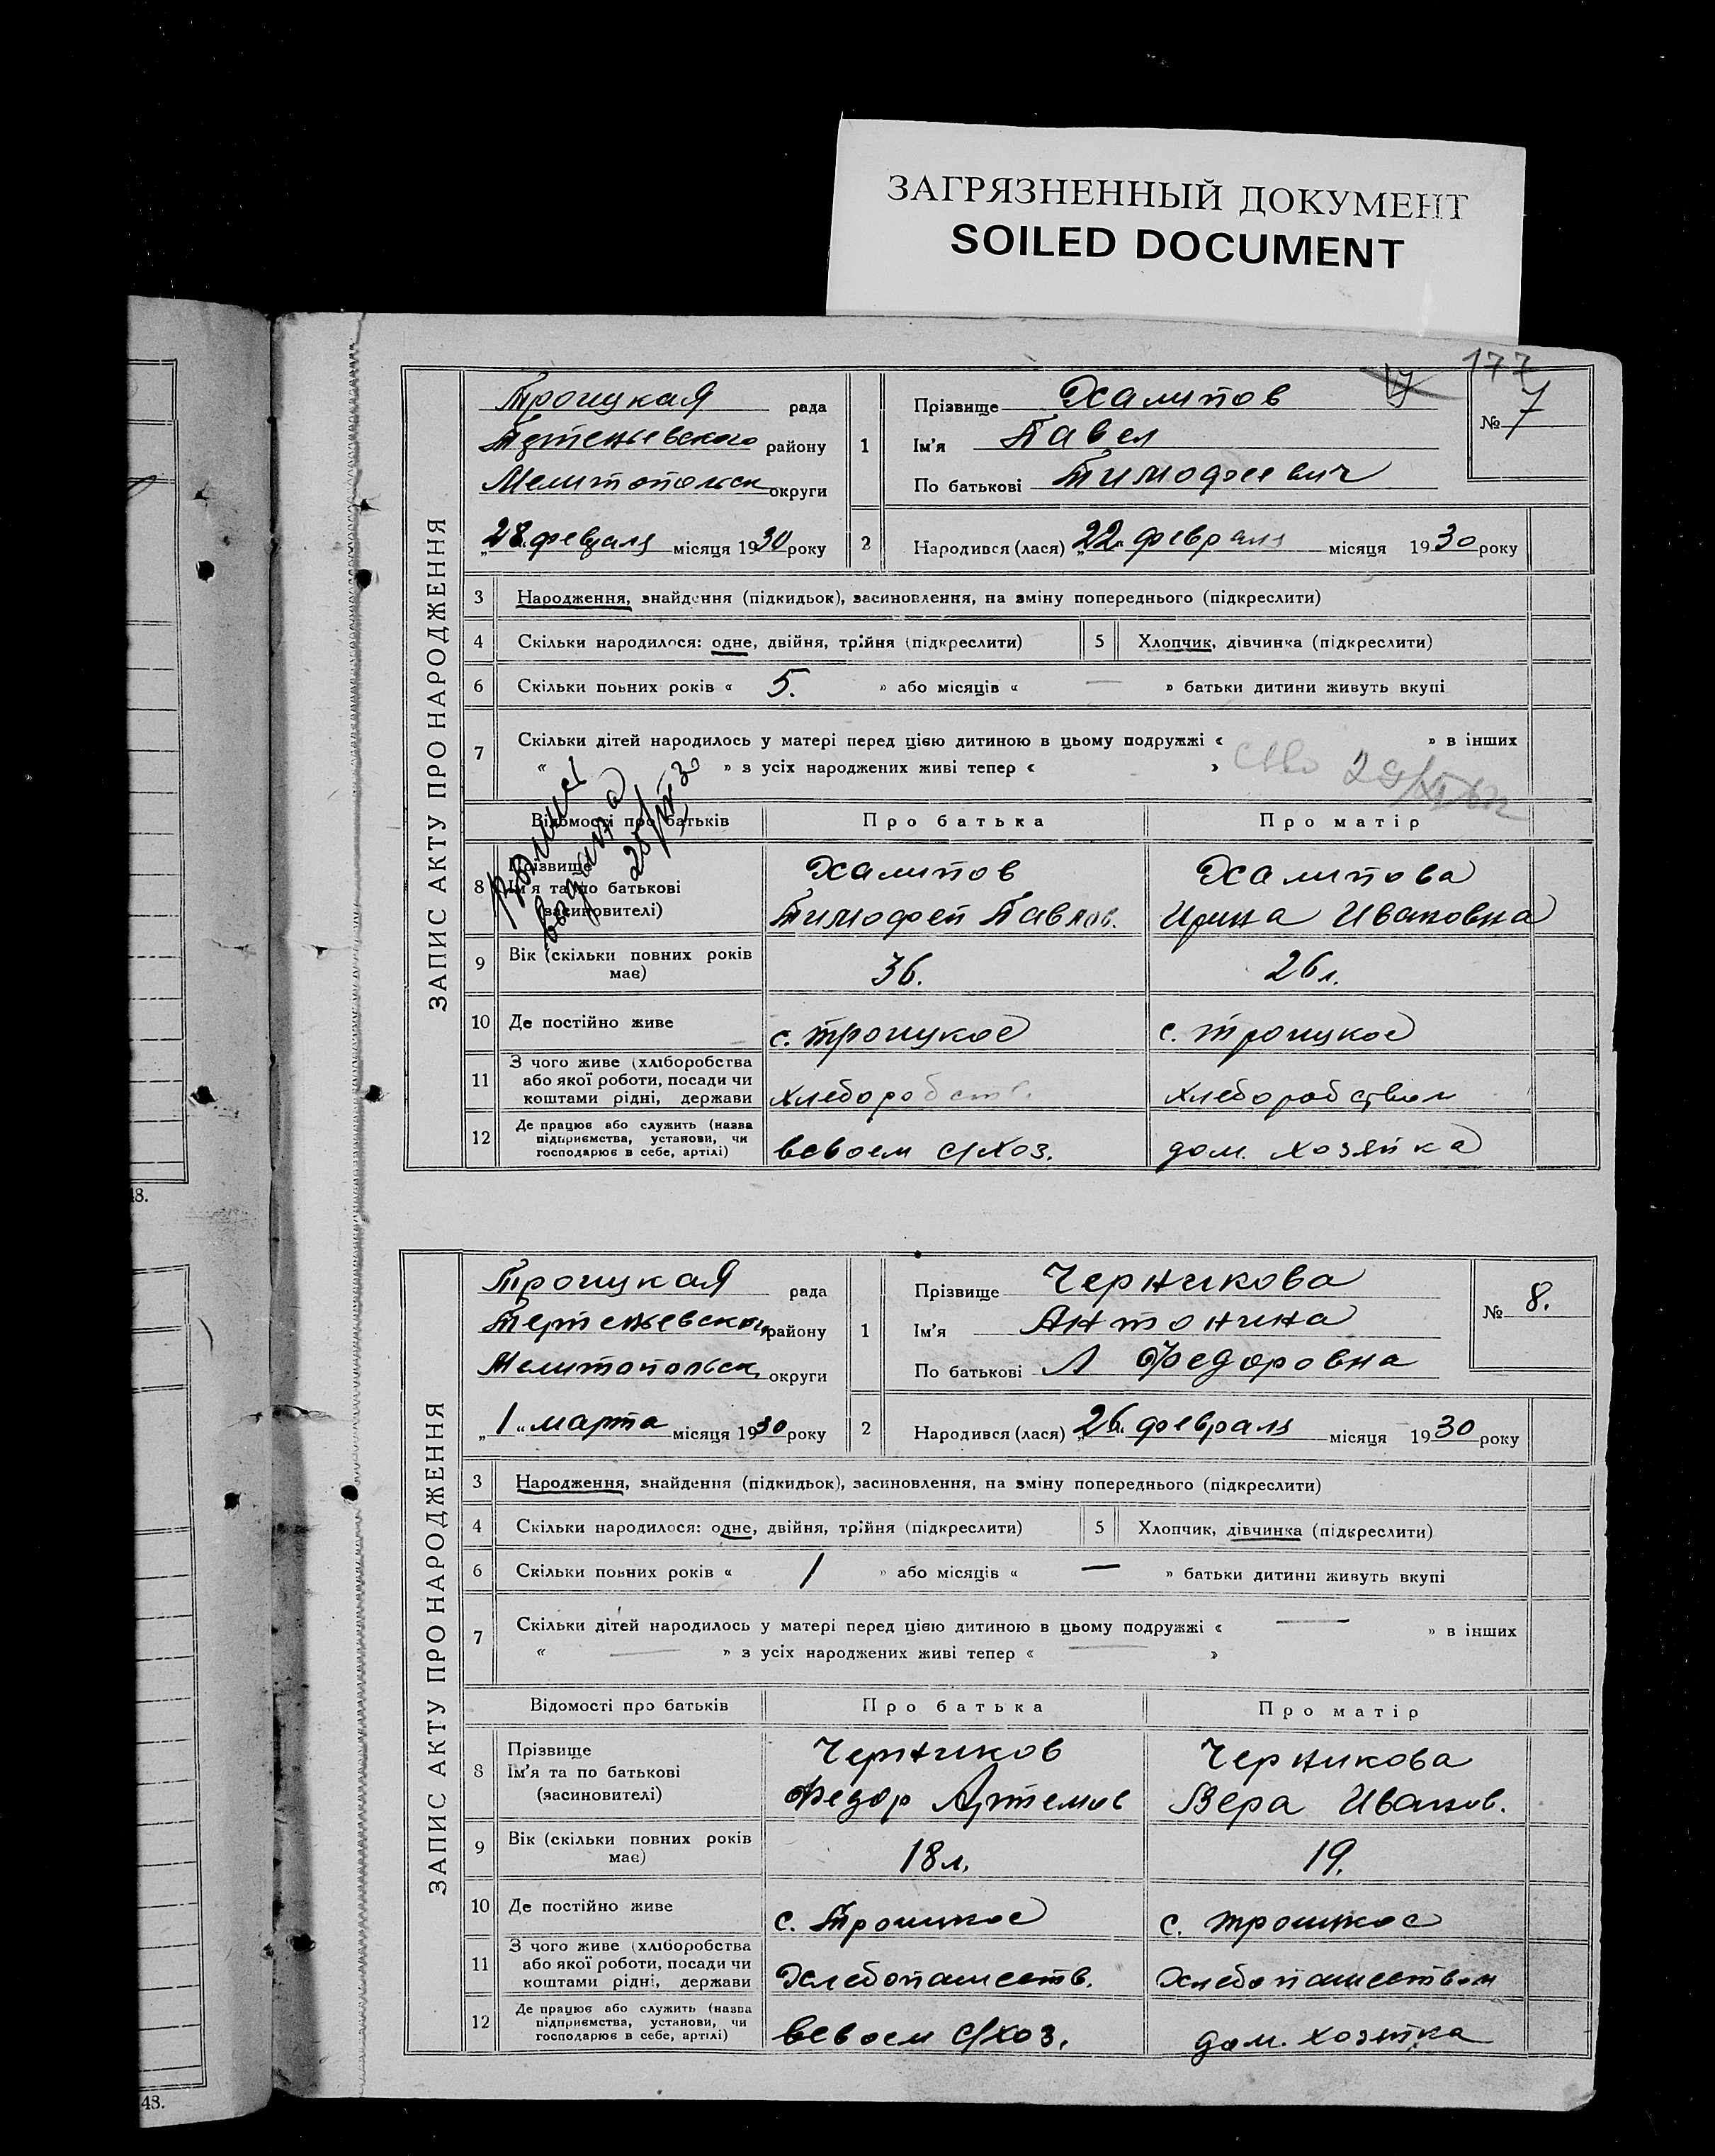 ЗАГРЯЗНЕННЫЙ ДОКУМЕНТ
SOILED DOCUMENT
177
ЗАПИС АКТУ ПРО НАРОДЖЕННЯ
Троицкая рада
району
Мелитопольск округи
„28“ февраля місяця 1930 року
1 Прізвище Халипов
Ім'я Павел
По батькові Тимофеевич
№ 7
2 Народився (лася) „22“ февраля місяця 1930 року
3 Народження, знайдення (підкидьок), засиновлення, на зміну попереднього (підкреслити)
4 Скільки народилося: одне, двійня, трійня (підкреслити) 5 Хлопчик, дівчинка (підкреслити)
6 Скільки повних років « 5. » або місяців « — » батьки дитини живуть вкупі
7 Скільки дітей народилось у матері перед цією дитиною в цьому подружжі « » в інших
« » з усіх народжених живі тепер « »
Відомості про батьків Про батька Про матір
8 Прізвище Халипов Халипова
Ім'я та по батькові
(засиновителі) Тимофей Павлов. Ирина Ивановна
9 Вік (скільки повних років
має) 36. 26 л.
10 Де постійно живе с. Троицкое с. Троицкое
11 З чого живе (хліборобства
або якої роботи, посади чи
коштами рідні, держави хлеборобств. хлеборобством
12 Де працює або служить (назва
підприємства, установи, чи
господарює в себе, артілі) всвоем с/хоз. дом. хозяйка
48.
ЗАПИС АКТУ ПРО НАРОДЖЕННЯ
Троицкая рада
району
Мелитопольск. округи
„1“ марта місяця 1930 року
1 Прізвище Черникова
Ім'я Антонина
По батькові Л Федоровна
№ 8.
2 Народився (лася) „26“ февраля місяця 1930 року
3 Народження, знайдення (підкидьок), засиновлення, на зміну попереднього (підкреслити)
4 Скільки народилося: одне, двійня, трійня (підкреслити) 5 Хлопчик, дівчинка (підкреслити)
6 Скільки повних років « 1 » або місяців « — » батьки дитини живуть вкупі
7 Скільки дітей народилось у матері перед цією дитиною в цьому подружжі « — » в інших
« — » з усіх народжених живі тепер « — »
Відомості про батьків Про батька Про матір
8 Прізвище Черников Черникова
Ім'я та по батькові
(засиновителі) Федор Артемов Вера Иванов.
9 Вік (скільки повних років
має) 18 л. 19.
10 Де постійно живе с. Троицкое с. Троицкое
11 З чого живе (хліборобства
або якої роботи, посади чи
коштами рідні, держави Хлебопашеств. Хлебопашеством
12 Де працює або служить (назва
підприємства, установи, чи
господарює в себе, артілі) всвоем с/хоз. дом. хозяйка
48.